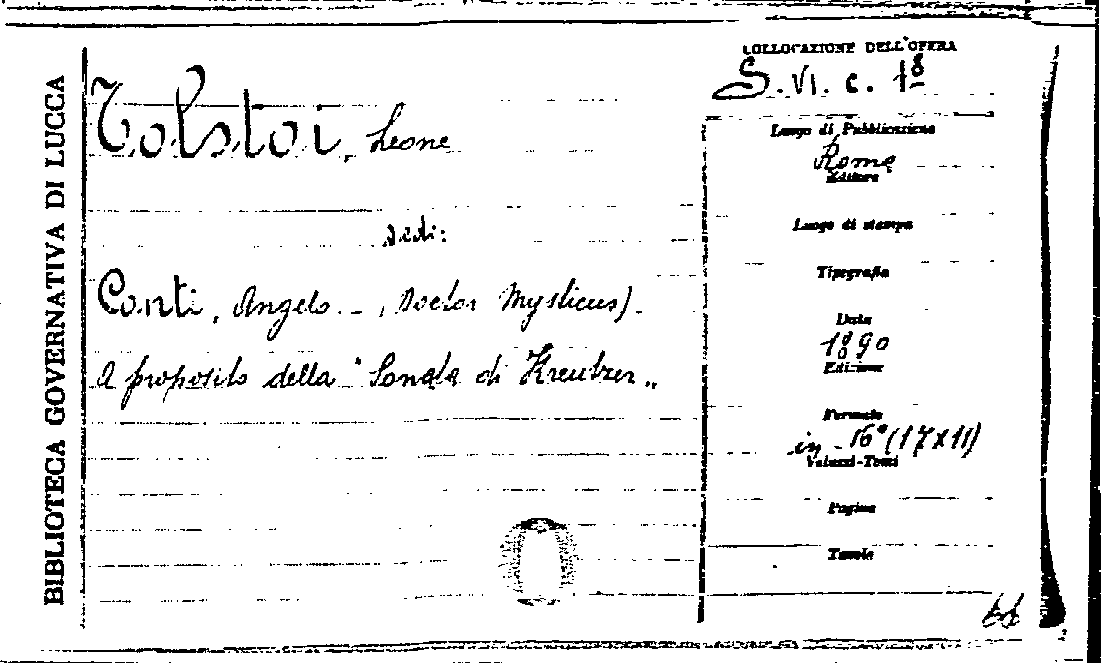 BIBLIOTECA GOVERNATIVA DI LUCCA
Tolstoi, Leone
vedi:
Conti, Angelo. - (Doctor Mysticus) -
A proposito della "Sonata di Kreutzer"
COLLOCAZIONE DELL'OPERA
S. VI. c. 18
Luogo di Pubblicazione
Roma
Editore
Luogo di stampa
Tipografia
Data
1890
Edizione
Formato
in - 16° (17x11)
Volumi-Tomi
Pagine
Tavole